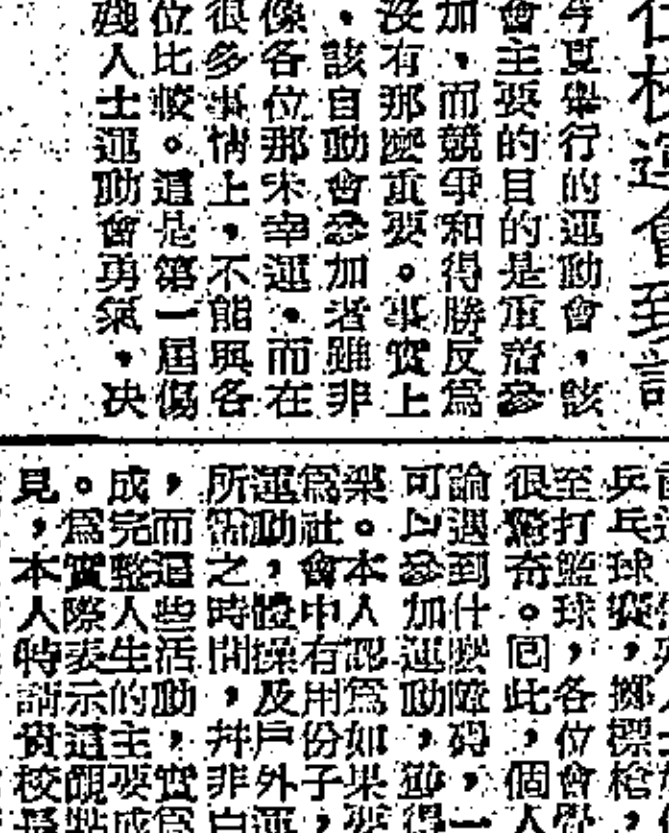 仁校運會到訪
今夏舉行的運動會，該
會主要的目的是重著參
加，而競爭和得勝反爲
沒有那麽重要。事實上
，該自動會參加者雖非
像各位那末幸運，而在
很多事情上，不能與各
位比較。這是第一屆傷
殘人士運動會勇氣，决
乒乓球
至打籃球，各位會
很驚奇。因此，個人
論遇到什麽障碍，一
可以參加運動，並得
樂。本人認爲如果要
爲社會中有用份子，
運動，體操及戶外運
所需之時間，并非白
，而這些活動，實爲
成完整人生的主要成
。爲實際表示這觀點
見，本人特請貴校長